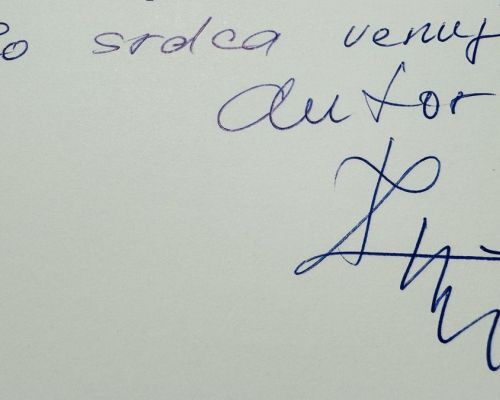 srdca venuj
autor